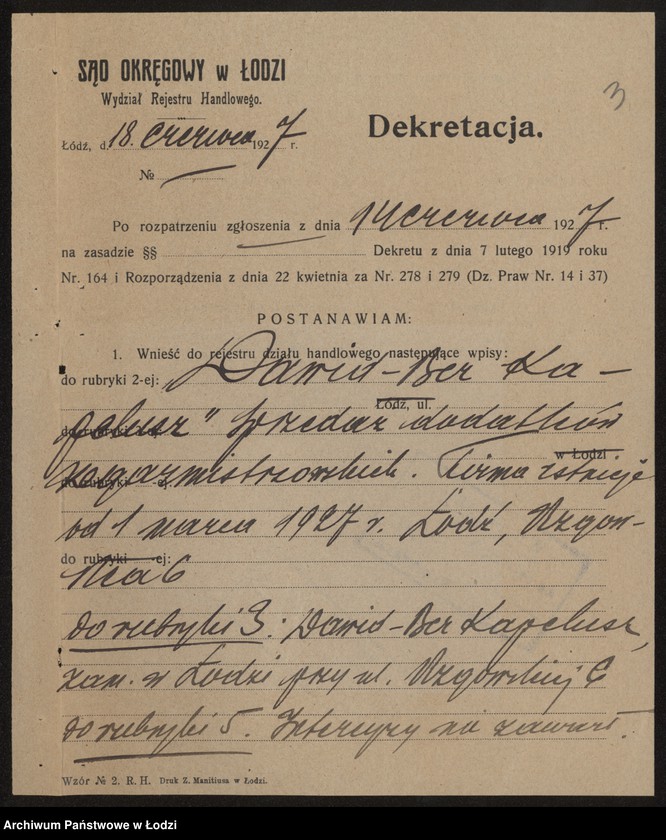 3
SĄD OKRĘGOWY w ŁODZI
Wydział Rejestru Handlowego.
Łódź, d. 18. czerwca 1927 r.
№
Dekretacja.
Po rozpatrzeniu zgłoszenia z dnia 14 czerwca 1927 r.
na zasadzie §§ Dekretu z dnia 7 lutego 1919 roku
Nr. 164 i Rozporządzenia z dnia 22 kwietnia za Nr. 278 i 279 (Dz. Praw Nr. 14 i 37)
POSTANAWIAM:
1. Wnieść do rejestru działu handlowego następujące wpisy:
do rubryki 2-ej: „Dawid-Ber Ka-
Łódź, ul.
pelusz" sprzedaż dodatków
w Łodzi
zegarmistrzowskich. Firma istnieje
do rubryki -ej:
od 1 marca 1927 r. Łódź, Rzgow-
do rubryki -ej:
ska 6
do rubryki 3: Dawid-Ber Kapelusz,
zam. w Łodzi przy ul. Rzgowskiej 6
do rubryki 5. Intercyzy nie zawarł.
Wzór № 2. R. H. Druk Z. Manitiusa w Łodzi.
Archiwum Państwowe w Łodzi